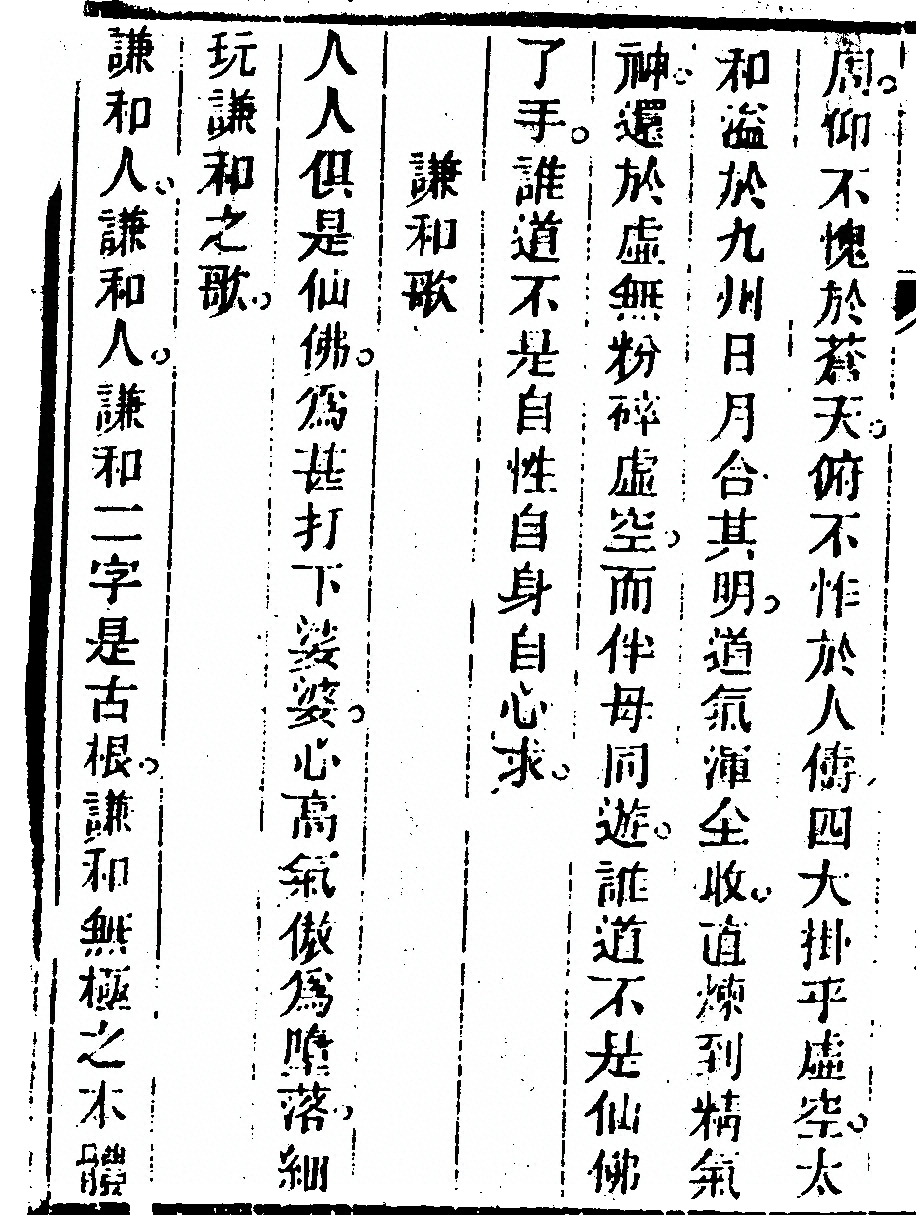 周。仰不愧於蒼天。俯不怍於人儔四大掛乎虛空。太
和溢於九州日月合其明。道氣渾全收。直煉到精氣
神。還於虛無粉碎虛空。而伴母同遊。誰道不是仙佛
了手。誰道不是自性自身自心求。
謙和歌
人人俱是仙佛。為甚打下娑婆。心高氣傲為墮落。細
玩謙和之歌。
謙和人。謙和人。謙和二字是古根。謙和無極之本體